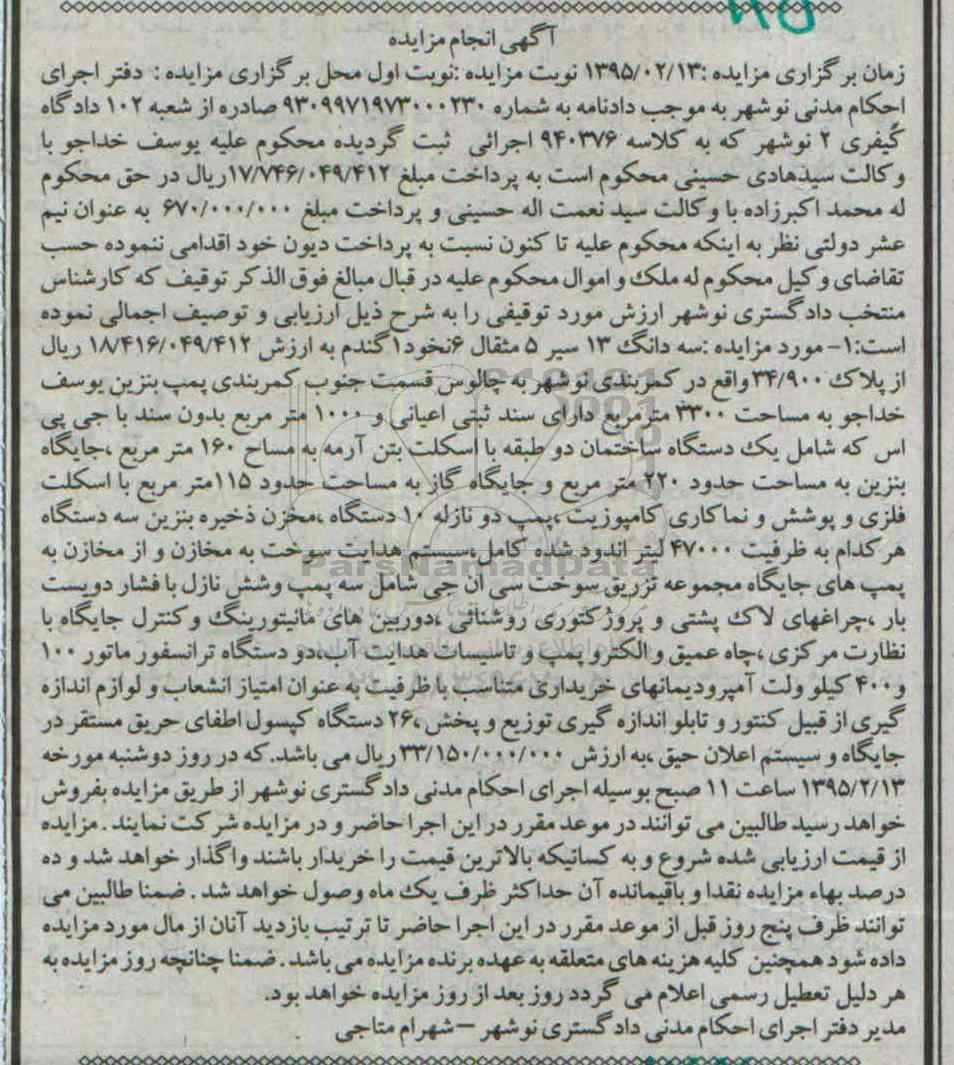 آگهی انجام مزایده
زمان برگزاری مزایده :۱۳۹۵/۰۲/۱۳ نوبت مزایده :نوبت اول محل برگزاری مزایده : دفتر اجرای
احکام مدنی نوشهر به موجب دادنامه به شماره ۹۳۰۹۹۷۱۹۷۳۰۰۰۲۳۰ صادره از شعبه ۱۰۲ دادگاه
کیفری ۲ نوشهر که به کلاسه ۹۴۰۳۷۶ اجرائی ثبت گردیده محکوم علیه یوسف خداجو با
وکالت سیدهادی حسینی محکوم است به پرداخت مبلغ ۱۷/۷۴۶/۰۴۹/۴۱۲ریال در حق محکوم
له محمد اکبرزاده با وکالت سید نعمت اله حسینی و پرداخت مبلغ ۶۷۰/۰۰۰/۰۰۰ به عنوان نیم
عشر دولتی نظر به اینکه محکوم علیه تا کنون نسبت به پرداخت دیون خود اقدامی ننموده حسب
تقاضای وکیل محکوم له ملک و اموال محکوم علیه در قبال مبالغ فوق الذکر توقیف که کارشناس
منتخب دادگستری نوشهر ارزش مورد توقیفی را به شرح ذیل ارزیابی و توصیف اجمالی نموده
است:۱- مورد مزایده :سه دانگ ۱۳ سیر ۵ مثقال ۶نخود۱گندم به ارزش ۱۸/۴۱۶/۰۴۹/۴۱۲ ریال
از پلاک ۳۴/۹۰۰واقع در کمربندی نوشهر به چالوس قسمت جنوب کمربندی پمپ بنزین یوسف
خداجو به مساحت ۳۳۰۰ مترمربع دارای سند ثبتی اعیانی و ۱۰۰۰ متر مربع بدون سند با جی پی
اس که شامل یک دستگاه ساختمان دو طبقه با اسکلت بتن آرمه به مساح ۱۶۰ متر مربع ،جایگاه
بنزین به مساحت حدود ۲۲۰ متر مربع و جایگاه گاز به مساحت حدود ۱۱۵متر مربع با اسکلت
فلزی و پوشش و نماکاری کامپوزیت ،پمپ دو نازله ۱۰ دستگاه ،مخزن ذخیره بنزین سه دستگاه
هر کدام به ظرفیت ۴۷۰۰۰ لیتر اندود شده کامل،سیستم هدایت سوخت به مخازن و از مخازن به
پمپ های جایگاه مجموعه تزریق سوخت سی ان جی شامل سه پمپ وشش نازل با فشار دویست
بار ،چراغهای لاک پشتی و پروژکتوری روشنائی ،دوربین های مانیتورینگ و کنترل جایگاه با
نظارت مرکزی ،چاه عمیق و الکترو پمپ و تاسیسات هدایت آب،دو دستگاه ترانسفور ماتور ۱۰۰
و ۴۰۰ کیلو ولت آمپرودیمانهای خریداری متناسب با ظرفیت به عنوان امتیاز انشعاب و لوازم اندازه
گیری از قبیل کنتور و تابلو اندازه گیری توزیع و پخش ،۲۶ دستگاه کپسول اطفای حریق مستقر در
جایگاه و سیستم اعلان حیق ،به ارزش ۳۳/۱۵۰/۰۰۰/۰۰۰ ریال می باشد.که در روز دوشنبه مورخه
۱۳۹۵/۲/۱۳ ساعت ۱۱ صبح بوسیله اجرای احکام مدنی دادگستری نوشهر از طریق مزایده بفروش
خواهد رسید طالبین می توانند در موعد مقرر در این اجرا حاضر و در مزایده شرکت نمایند . مزایده
از قیمت ارزیابی شده شروع و به کسانیکه بالاترین قیمت را خریدار باشند واگذار خواهد شد و ده
درصد بهاء مزایده نقدا و باقیمانده آن حداکثر ظرف یک ماه وصول خواهد شد . ضمنا طالبین می
توانند ظرف پنج روز قبل از موعد مقرر در این اجرا حاضر تا ترتیب بازدید آنان از مال مورد مزایده
داده شود همچنین کلیه هزینه های متعلقه به عهده برنده مزایده می باشد . ضمنا چنانچه روز مزایده به
هر دلیل تعطیل رسمی اعلام می گردد روز بعد از روز مزایده خواهد بود.
مدیر دفتر اجرای احکام مدنی دادگستری نوشهر – شهرام متاجی
ParsNamadData